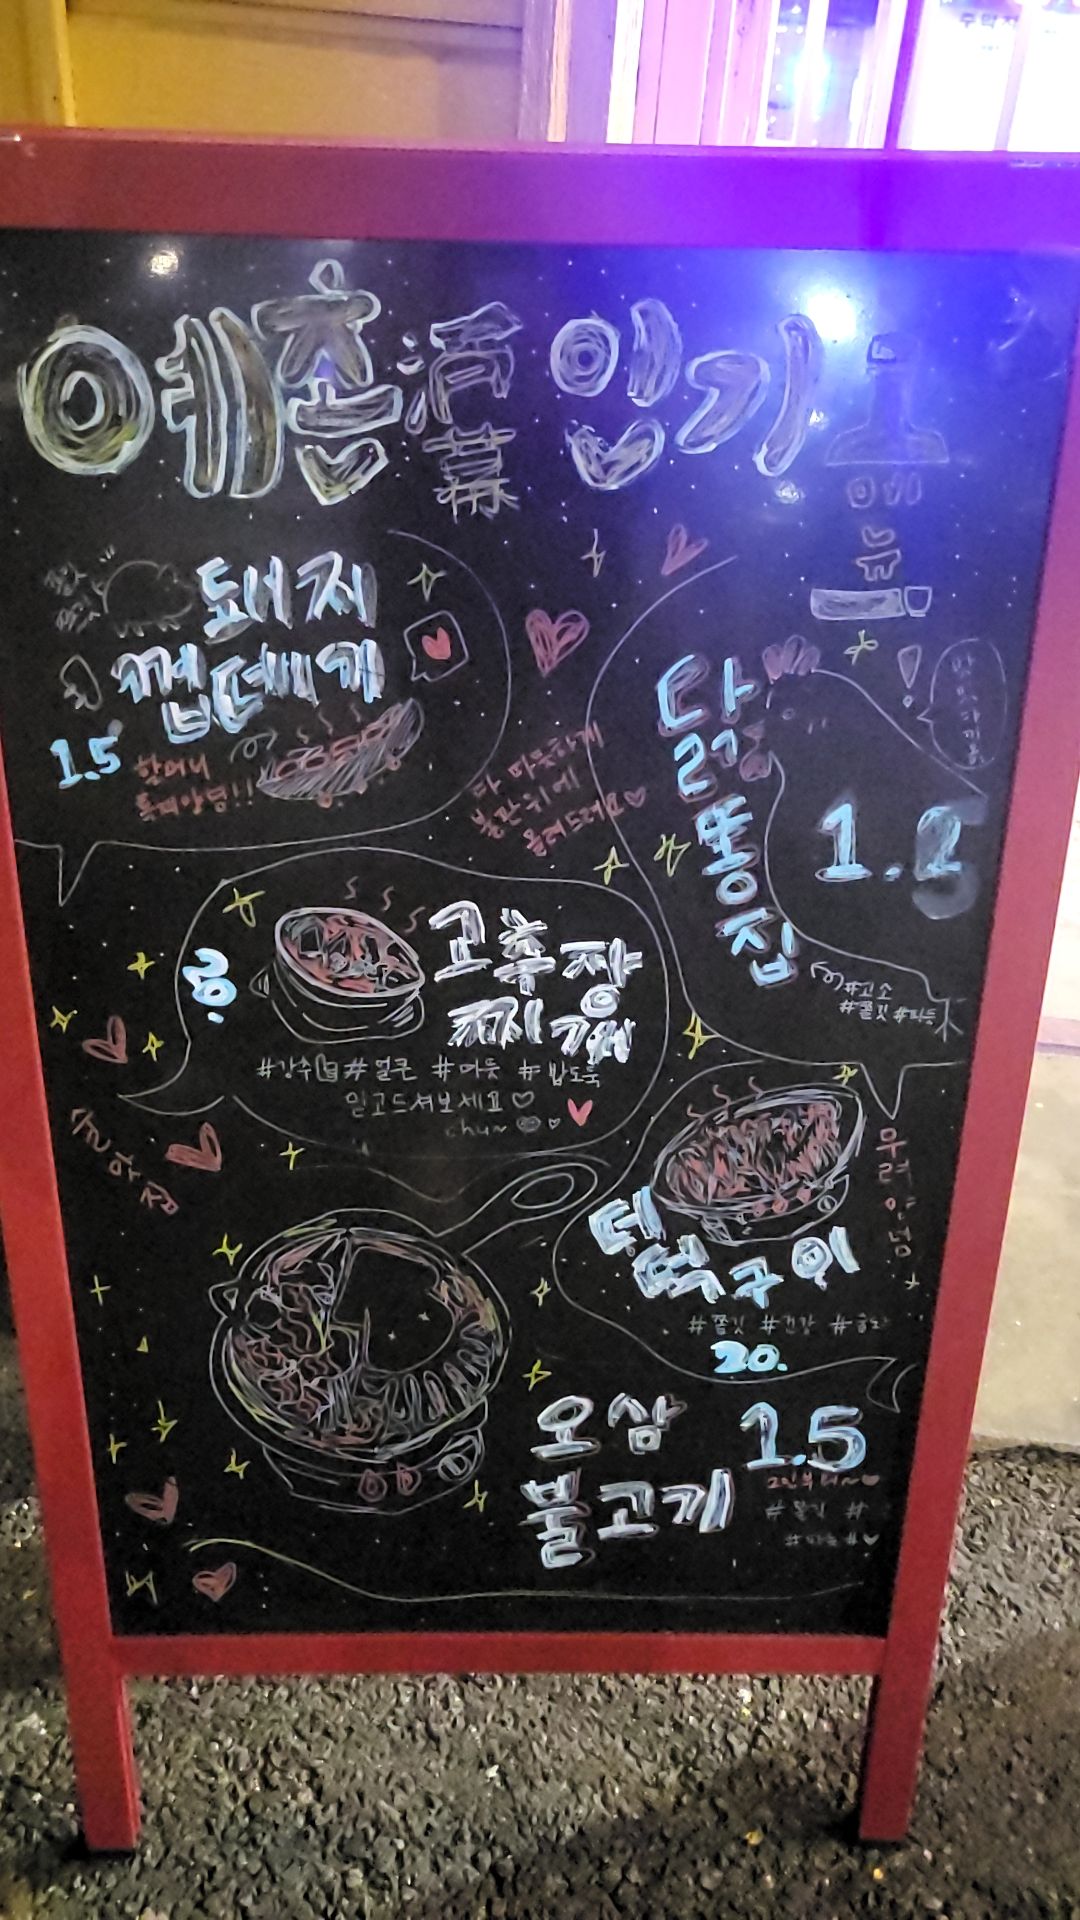 예촌酒幕 인기
메뉴
돼지
껍데기
1.5
할머니
특펴양념!!
다 따뜻하게
불판위에
올려드려요♡
닭똥집
#고소
#쫄깃 #따뜻
고추장
찌개
#강추 #얼큰 #따듯 #밥도둑
믿고드셔보세요♡
chu~
우려양념
더덕구이
#쫄깃 #건강
20.
오삼
불고기
1.5
2인부터~♥
#쫄깃 #
#따듯 #♥